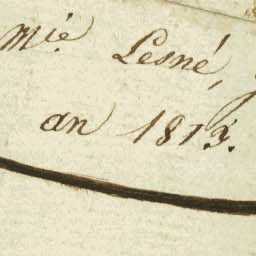 Mie. Lesné,
an 1813.